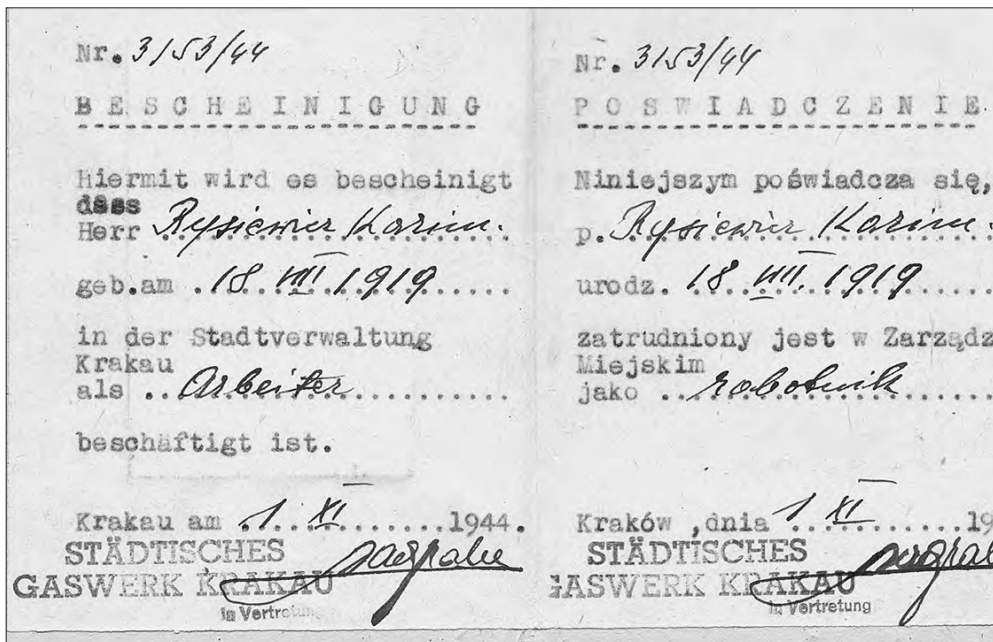 Nr. 3153/44
BESCHEINIGUNG
Hiermit wird es bescheinigt
dass
Herr Rysiewicz Kazim.
geb.am 18. VIII 1919
in der Stadtverwaltung
Krakau
als .. Arbeiter
beschäftigt ist.
Krakau am 1. XI 1944.
STÄDTISCHES
GASWERK KRAKAU
in Vertretung
Nr. 3153/44
POSWIADCZENIE
Niniejszym poświadcza się,
p. Rysiewicz Kazim.
urodz. 18. VIII. 1919
zatrudniony jest w Zarządz
Miejskim
jako .. robotnik
Kraków ,dnia 1. XI 19
STÄDTISCHES
GASWERK KRAKAU
in Vertretung